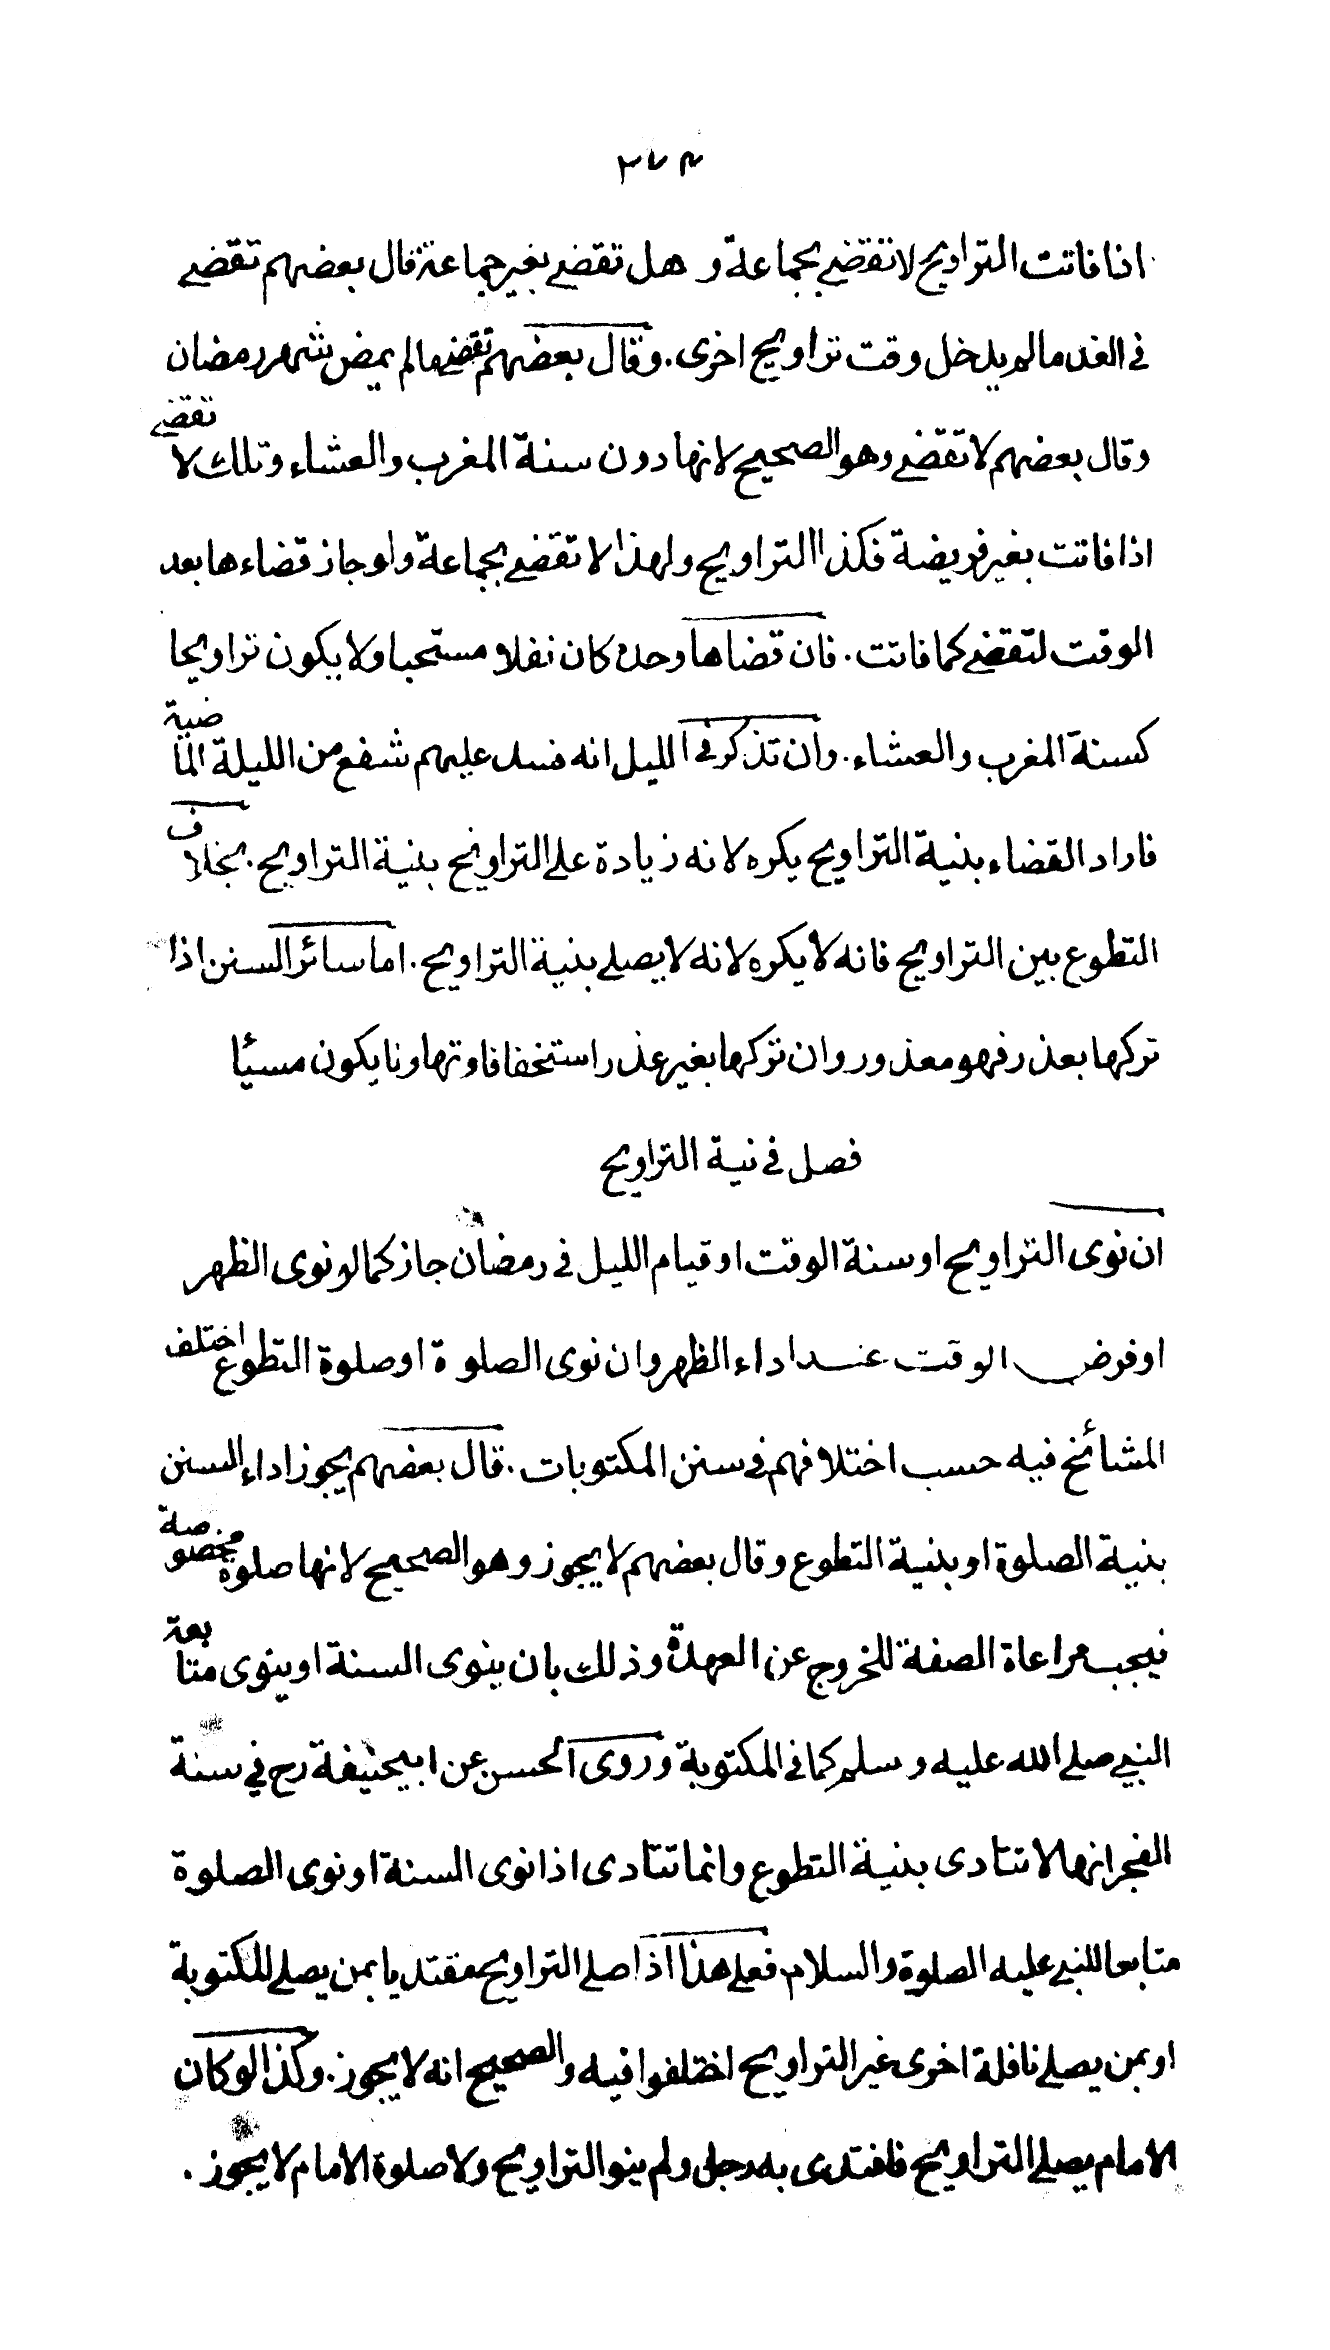 ٢٧٤
اذا فاتت التراويح لا تقضى بجماعة و هل تقضى بغير جماعة قال بعضهم تقضى
فى الغد مالم يدخل وقت تراويح اخرى. وقال بعضهم تقضى مالم يمض شهر رمضان
وقال بعضهم لا تقضى وهو الصحيح لانها دون سنة المغرب والعشاء وتلك لا تقضى
اذا فاتت بغير فريضة فكذا التراويح ولهذا لا تقضى بجماعة ولو جاز قضاءها بعد
الوقت لتقضى كما فاتت. فان قضاها وحده كان نفلا مستحبا ولا يكون تراويحا
كسنة المغرب والعشاء. وان تذكر فى الليل انه فسد عليهم شفع من الليلة الماضية
فاراد القضاء بنية التراويح يكره لانه زيادة على التراويح بنية التراويح. بخلاف
التطوع بين التراويح فانه لا يكره لانه لا يصلى بنية التراويح. اما سائر السنن اذا
تركها بعذر فهو معذور وان تركها بغير عذر استخفافا وتهاونا يكون مسيئا
فصل فى نية التراويح
ان نوى التراويح او سنة الوقت او قيام الليل فى رمضان جاز كما لو نوى الظهر
او فرض الوقت عند اداء الظهر وان نوى الصلوة او صلوة التطوع اختلف
المشائخ فيه حسب اختلافهم فى سنن المكتوبات. قال بعضهم يجوز اداء السنن
بنية الصلوة او بنية التطوع وقال بعضهم لا يجوز وهو الصحيح لانها صلوة مخصوصة
فيجب مراعاة الصفة للخروج عن العهدة وذلك بان ينوى السنة او ينوى متابعة
النبى صلى الله عليه و سلم كما فى المكتوبة وروى الحسن عن ابيحنيفة رح فى سنة
الفجر انها لا تتادى بنية التطوع وانما تتادى اذا نوى السنة او نوى الصلوة
متابعا للنبى عليه الصلوة والسلام فعلى هذا اذا صلى التراويح مقتديا بمن يصلى المكتوبة
او بمن يصلى نافلة اخرى غير التراويح اختلفوا فيه والصحيح انه لا يجوز. وكذا لو كان
الامام يصلى التراويح فاقتدى به رجل ولم ينو التراويح ولا صلوة الامام لا يجوز.